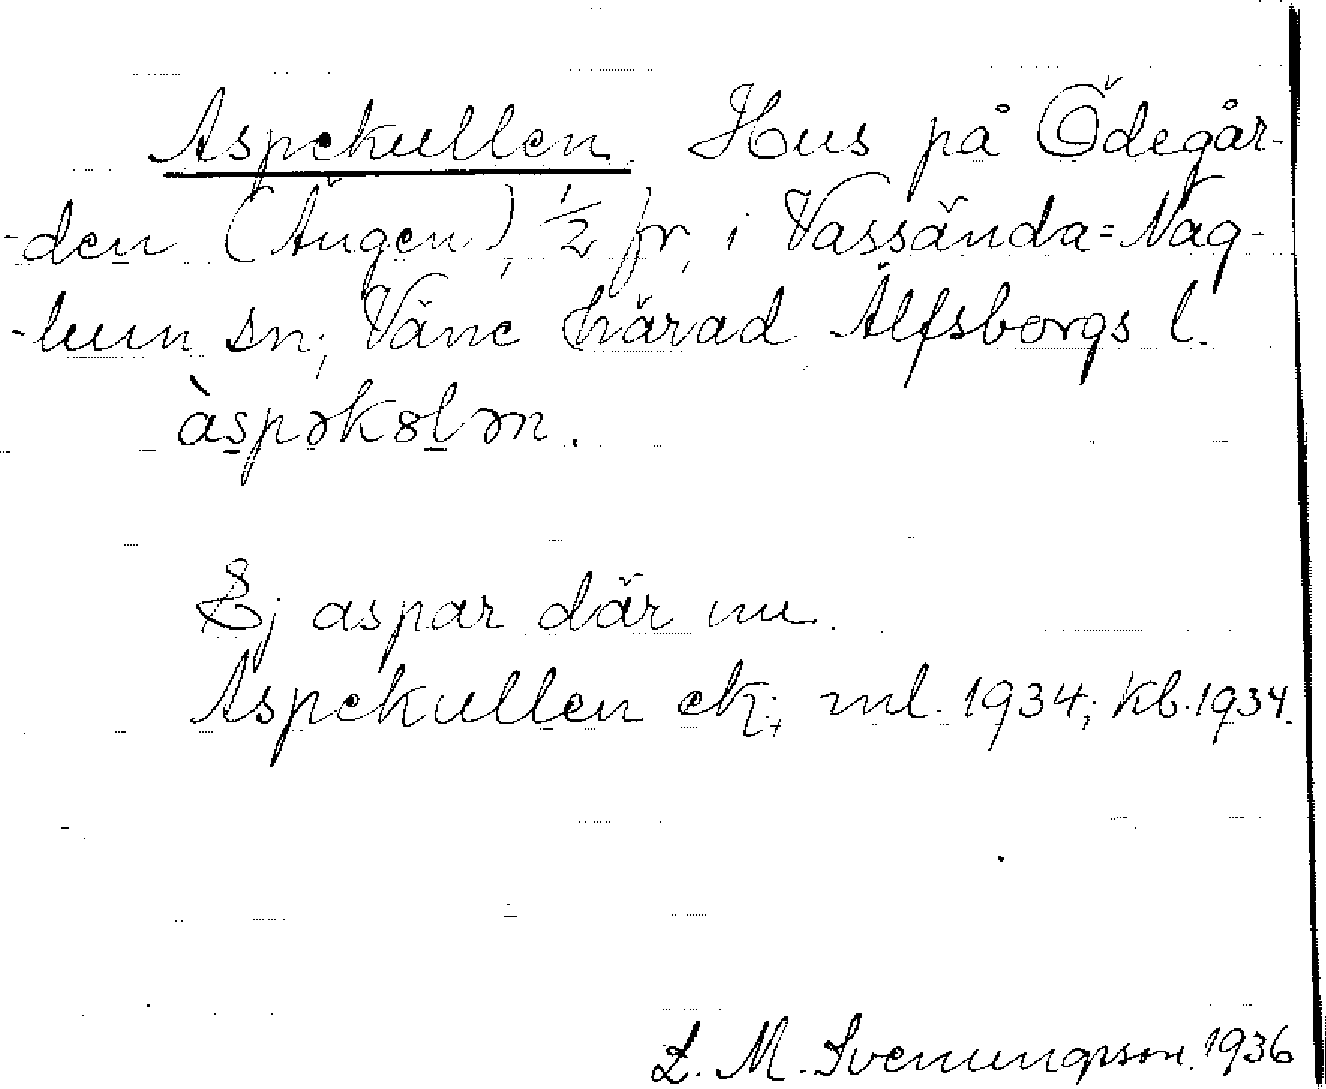 Aspekullen. Hus på Ödegår-
-den (Ängen), 1/2 fr, i Vassända=Nag-
-lum sn; Väne härad Älfsborgs l.
àspəkꝏlən.
Ej aspar där nu.
Aspekullen ek; ml. 1934; kb. 1934.
L. M. Svenungsson. 1936